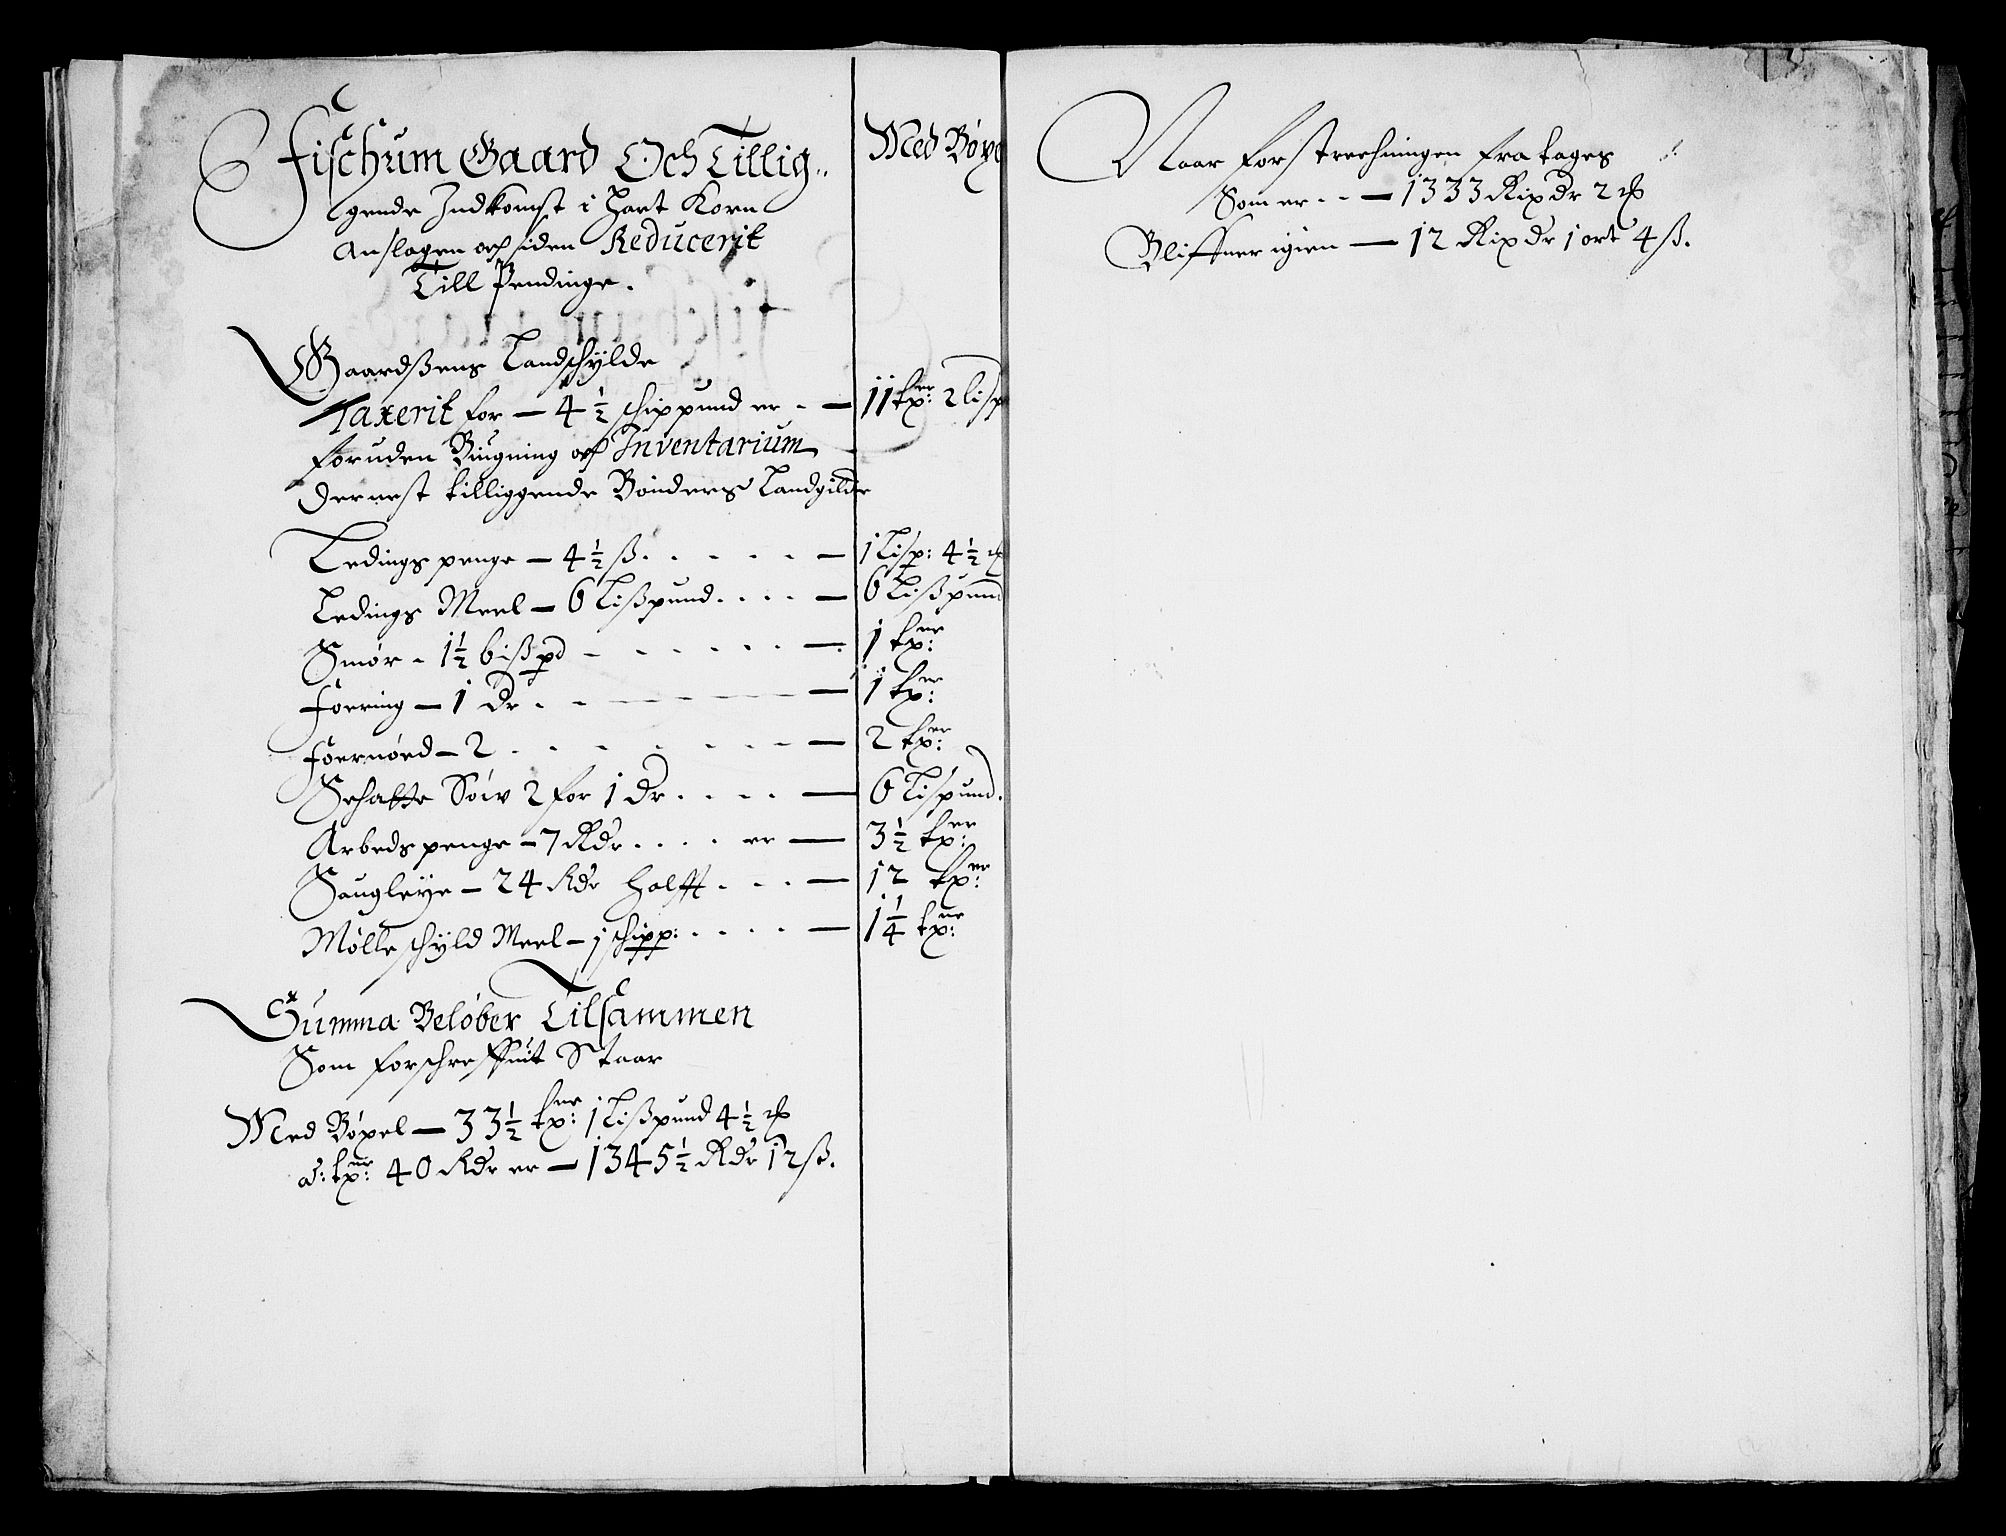 Fischum Gaard Och Tillig„
gende Indkomst i Hart Korn
Anslagen och siden Reducerit
Till Pendinge.
Med Bøxe
Gaardßens Landschylde
Taxerit for — 4½ schippund er - — 11 tr: 2 lisp
foruden Biugning och Inventarium
Dernest tilliggende Bønders Landgilde
Ledings penge — 4½ ß. . . . . — 1 Lisp: 4½
Ledings Meel — 6 Lißpund. . . . — 6 Lißpund
Smør - 1½ bißpd - - - - - - — 1
Foering — 1 Dr. - - - - - — 1
Foernøed — 2 . - - - - - - — 2
Schatte Søiv 2 for 1 Dr. . . . — 6 Lispund.
Arbedspenge — 7 Rdr. . . . er — 3½
Saugleye — 24 Rdr halfft. . . . — 12
Mølle schyld Meel — 1 schipp: . . . . — 1¼
Summa Beløber Tilsammen
Som forschreffuit Staar
Med Bøxel — 33½ 1 Lißpund 4½
40 Rdr er — 1345½ Rdr 12 ß.
Naar forstrechningen fra tages
Som er - - — 1333 Rixdr 2
Bliffuer igien — 12 Rixdr 1 ort 4 ß.